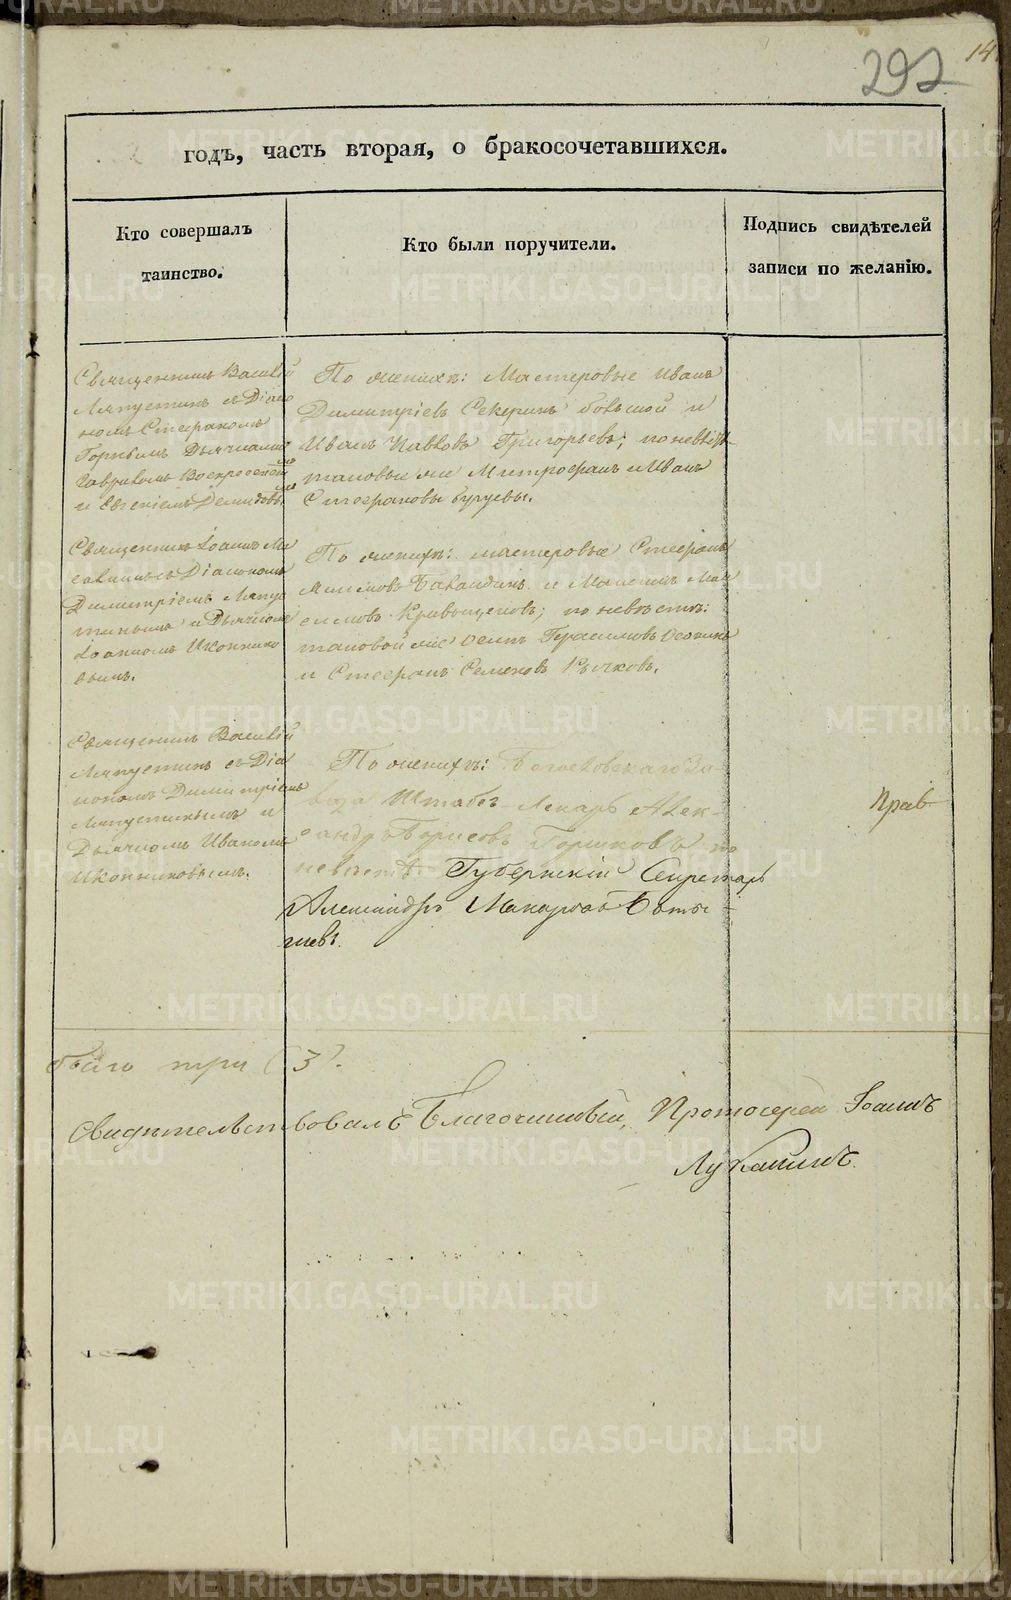 292
14
годъ, часть вторая, о бракосочетавшихся.
Кто совершалъ
таинство.
Кто были поручители.
Подпись свидѣтелей
записи по желанію.
Священникъ Василій
Ляпустинъ съ Діако
номъ Стефаномъ
Горнымъ Дьячками
Гавриломъ Воскресенскимъ
и Евгеніемъ Демидовымъ
По женихѣ: Мастеровые Иванъ
Димитріевъ Секеринъ большой и
Иванъ Павловъ Григорьевъ; по невѣстѣ
таковые же Митрофанъ и Иванъ
Стефановы
Священникъ Іоаннъ
съ Діакономъ
Димитріемъ Ляпу
стинымъ и Дьячкомъ
Іоанномъ Иконнико
вымъ.
По женихѣ: мастеровые Стефанъ
Акимовъ Баландинъ и
Кривощековъ; по невѣстѣ:
таковой же Герасимовъ
и Стефанъ Семеновъ Рычковъ.
Священникъ Василій
Ляпустинъ съ Діа
кономъ Димитріемъ
Ляпустинымъ и
Дьячкомъ Иваномъ
Иконниковымъ.
По женихѣ: Богословскаго За-
вода Штабъ-Лекарь Алек-
сандръ Борисовъ Горшковъ по
невѣстѣ Губернскій Секретарь
Александръ Макаровъ
Прав
было три (3).
Свидѣтельствовалъ Благочинный, Протоіерей Іоаннъ
Луканинъ.
METRIKI.GASO-URAL.RU